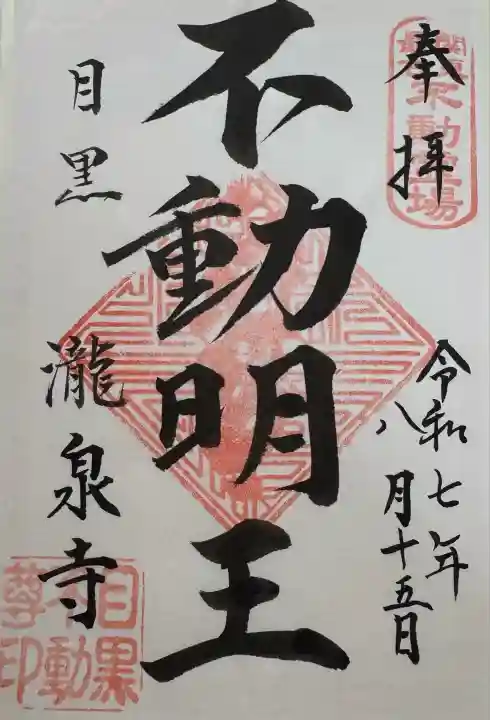 奉拝
不動霊場
令和七年
八月十五日
不動明王
目黒
瀧泉寺
目黒
不動
尊印